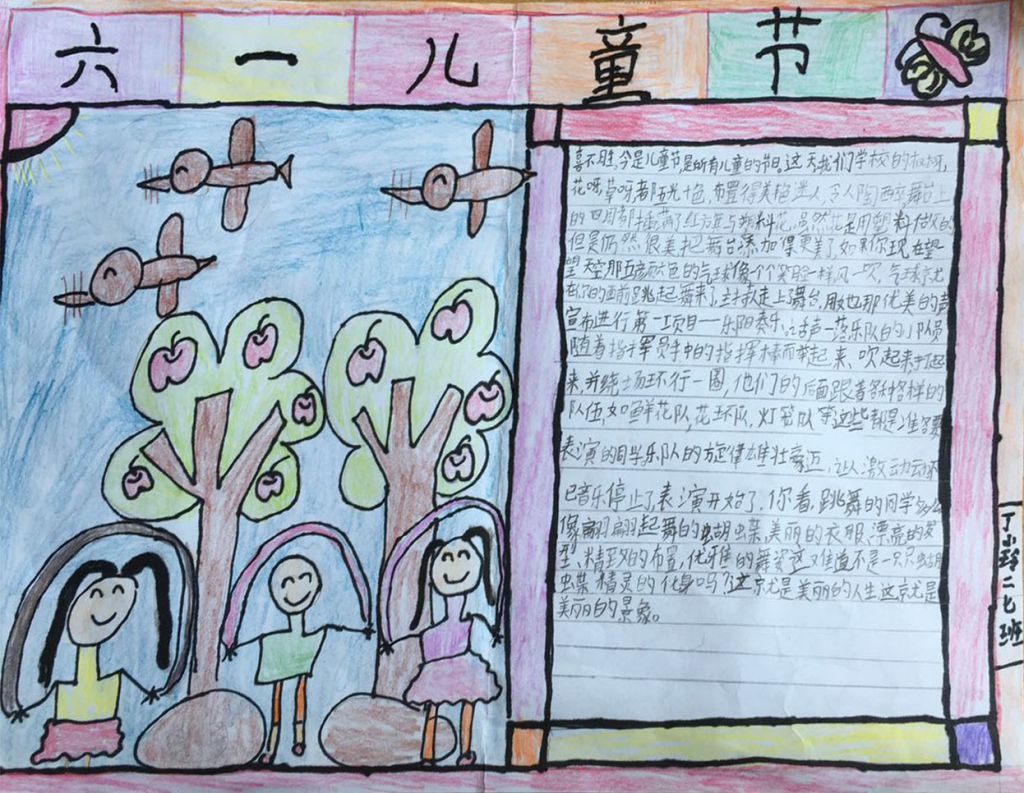 六一儿童节
喜不胜,今是儿童节,是所有儿童的节日。这天我们学校的树呀,
花呀,草呀,都五光十色,布置得美艳迷人,令人陶醉舞台上
的四周都插满了红旗与塑料花,虽然花是用塑料做的
但是仍然很美把舞台添加得更美了如果你现在望
望天空那五颜六色的气球像个个笑脸一样风一吹,气球就
在你的面前跳起舞来了,主持走上了舞台,用她那优美的声
宣布进行第一项目——乐阳奏乐。话声一落乐队的小队员
随着指挥员手中的指挥棒而举起来、吹起来打起
来,并绕场环行一圈,他们的后面跟着各种各样的
队伍,如鲜花队,花环队,灯笼队等这些都是准备要
表演的同学乐队的旋律雄壮豪迈,让人激动动不
已音乐停止了表演开始了。你看,跳舞的同学多么
像翩翩起舞的蝴蝶,美丽的衣服,漂亮的发
型,精致的布置,优雅的舞姿这难道不是一只只蝴
蝶精灵的化身吗?这就是美丽的人生这就是
美丽的景象。
丁小玲二七班